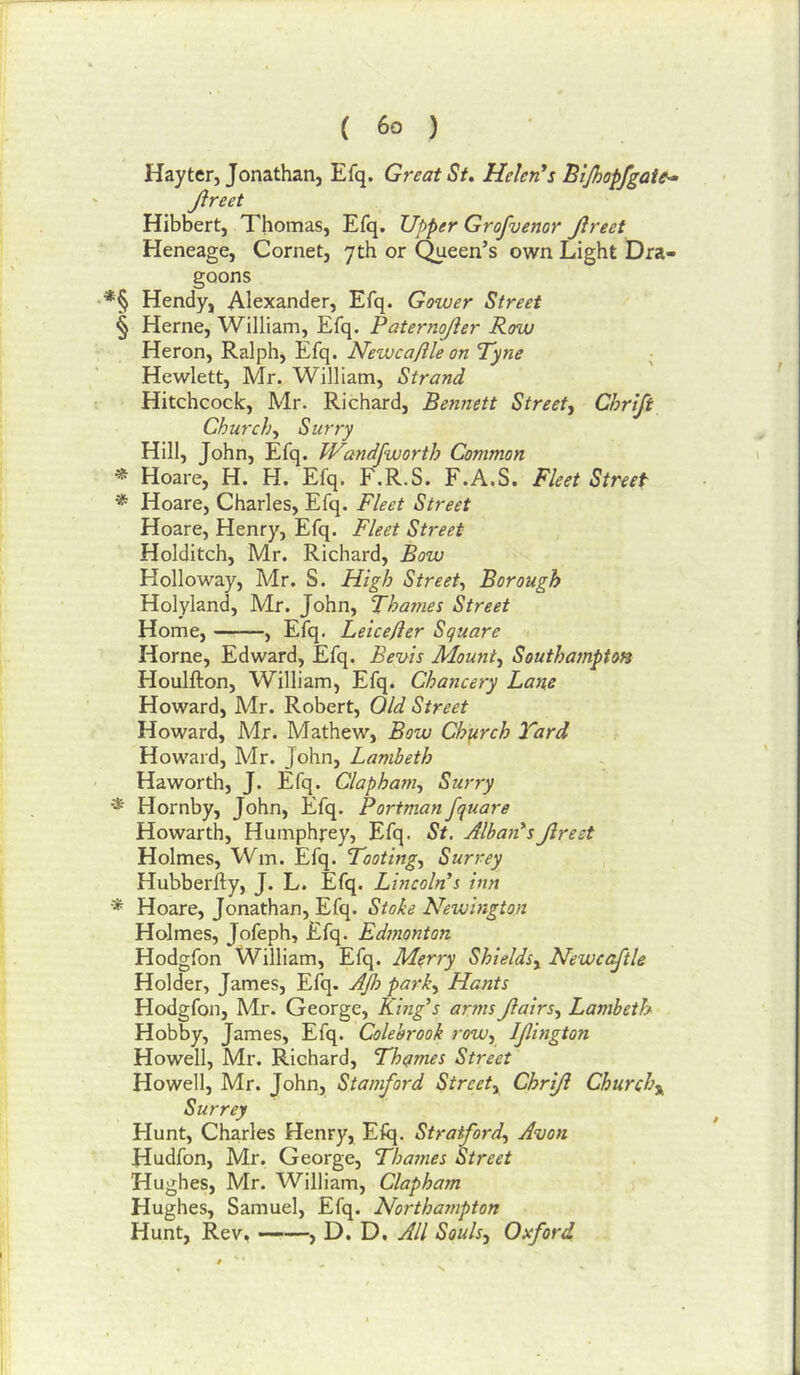 ( 60 )
Hayter, Jonathan, Eſq. Great St. Helen's Biſhopſgate-
ſtreet
Hibbert, Thomas, Eſq. Upper Groſvenor ſtreet
Heneage, Cornet, 7th or Queen's own Light Dra-
goons
*§ Hendy, Alexander, Eſq. Gower Street
§ Herne, William, Eſq. Paternoſter Row
Heron, Ralph, Eſq. Newcaſtle on Tyne
Hewlett, Mr. William, Strand
Hitchcock, Mr. Richard, Bennett Street, Chriſt
Church, Surry
Hill, John, Eſq. Wandſworth Common
* Hoare, H. H. Eſq. F.R.S. F.A.S. Fleet Street
* Hoare, Charles, Eſq. Fleet Street
Hoare, Henry, Eſq. Fleet Street
Holditch, Mr. Richard, Bow
Holloway, Mr. S. High Street, Borough
Holyland, Mr. John, Thames Street
Home, ——, Eſq. Leiceſter Square
Horne, Edward, Eſq. Bevis Mount, Southampton
Houlſton, William, Eſq. Chancery Lane
Howard, Mr. Robert, Old Street
Howard, Mr. Mathew, Bow Church Yard
Howard, Mr. John, Lambeth
Haworth, J. Eſq. Clapham, Surry
* Hornby, John, Eſq. Portman ſquare
Howarth, Humphrey, Eſq. St. Alban's ſtreet
Holmes, Wm. Eſq. Tooting, Surrey
Hubberſty, J. L. Eſq. Lincoln's inn
* Hoare, Jonathan, Eſq. Stoke Newington
Holmes, Joſeph, Eſq. Edmonton
Hodgſon William, Eſq. Merry Shields, Newcaſtle
Holder, James, Eſq. Aſh park, Hants
Hodgſon, Mr. George, King's arms ſtairs, Lambeth
Hobby, James, Eſq. Colebrook row, Iſlington
Howell, Mr. Richard, Thames Street
Howell, Mr. John, Stamford Street, Chriſt Church,
Surrey
Hunt, Charles Henry, Eſq. Stratford, Avon
Hudſon, Mr. George, Thames Street
Hughes, Mr. William, Clapham
Hughes, Samuel, Eſq. Northampton
Hunt, Rev. ——, D. D. All Souls, Oxford